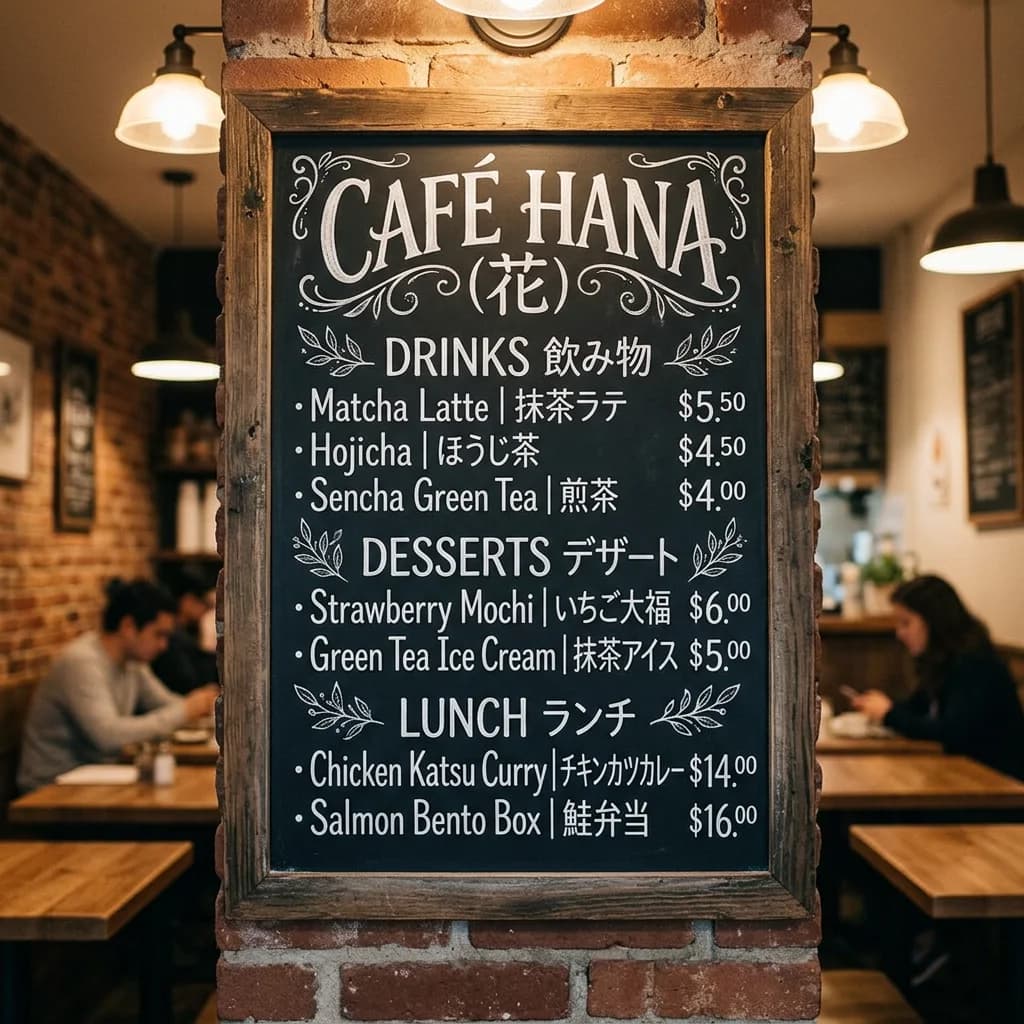 CAFÉ HANA
(花)
DRINKS 飲み物
• Matcha Latte | 抹茶ラテ $5.50
• Hojicha | ほうじ茶 $4.50
• Sencha Green Tea | 煎茶 $4.00
DESSERTS デザート
• Strawberry Mochi | いちご大福 $6.00
• Green Tea Ice Cream | 抹茶アイス $5.00
LUNCH ランチ
• Chicken Katsu Curry | チキンカツカレー $14.00
• Salmon Bento Box | 鮭弁当 $16.00